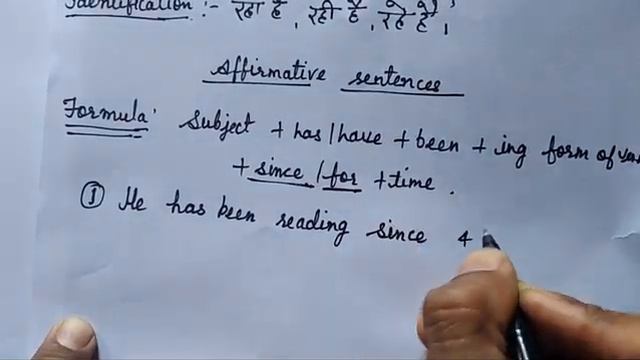 Identification :- रहा है, रही है, रहे हैं,।
Affirmative sentences
Formula: Subject + has/have + been + ing form of
+ since/for + time.
① He has been reading since 4